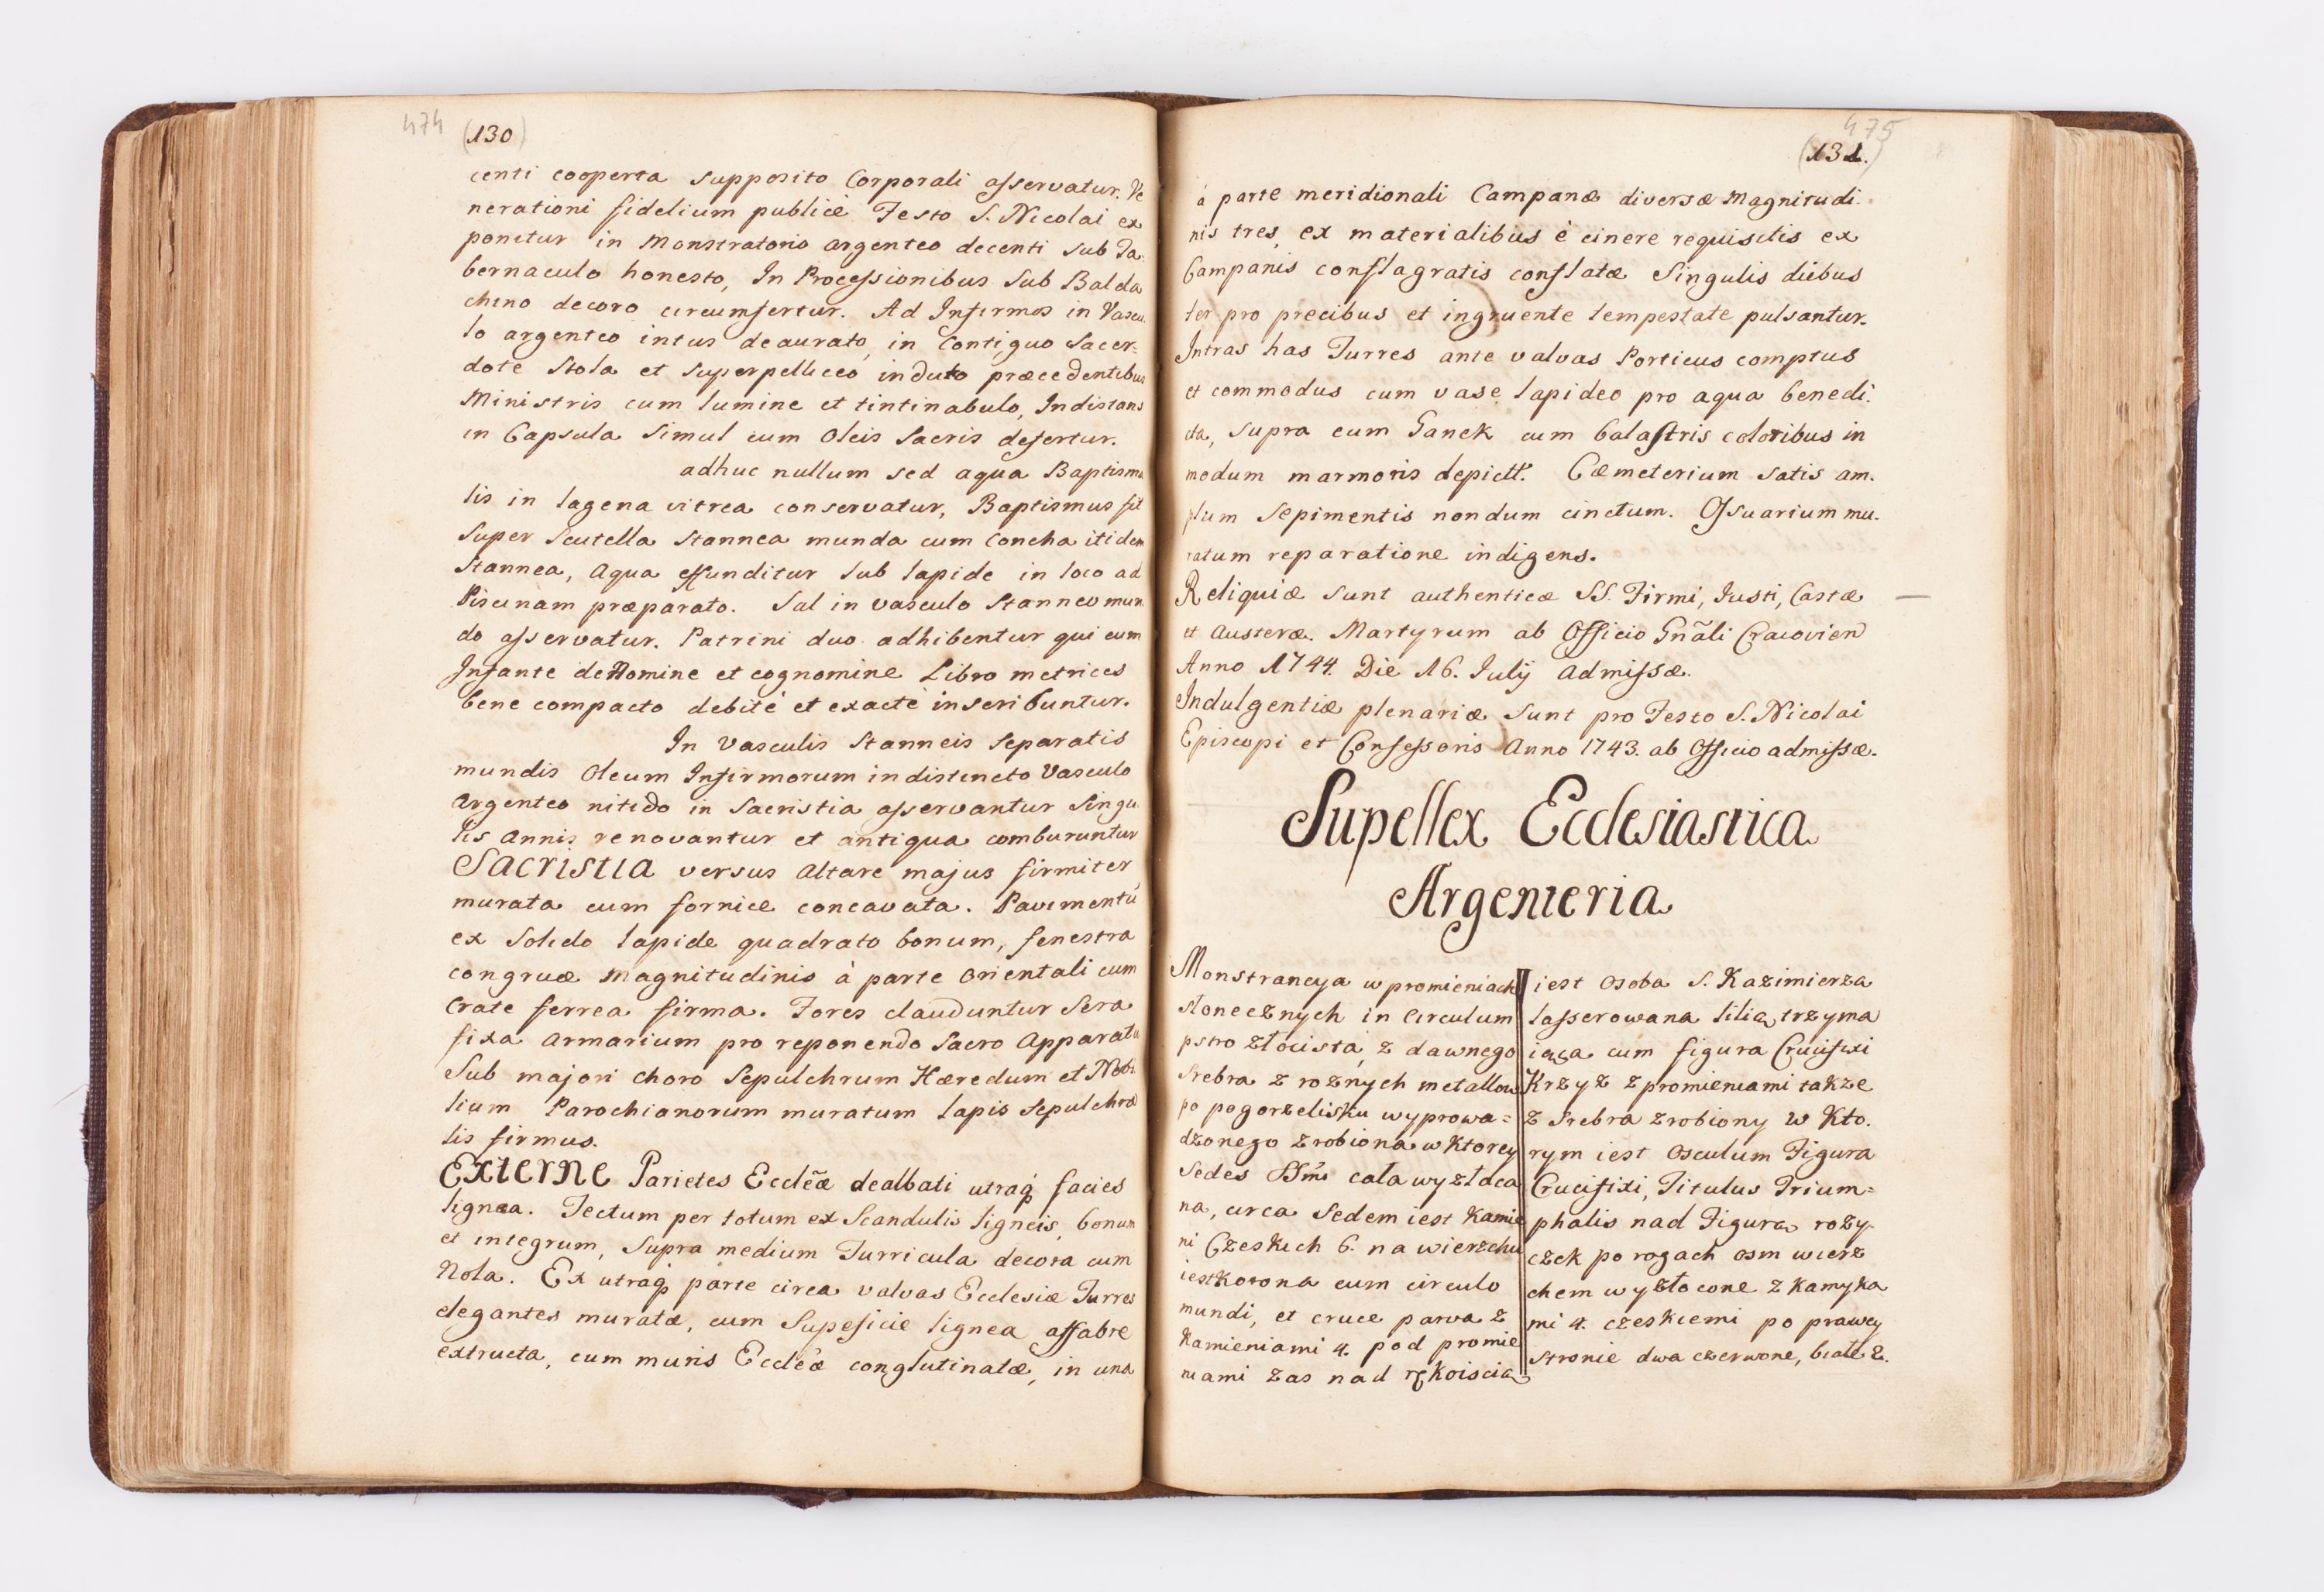 474 (130)
centi cooperta supposito Corporali asservatur. Ve
nerationi fidelium publicè Festo S. Nicolai ex
ponitur in Monstratorio argenteo decenti sub Ta
bernaculo honesto, In Processionibus sub Balda
chino decoro circumfertur. Ad Infirmos in Vascu
lo argenteo intus deaurato, in contiguo Sacer=
dote Stola et superpelliceo induto præcedentibus
Ministris cum lumine et tintinabulo, Indistans
in Capsula simul cum Oleis Sacris defertur.
adhuc nullum sed aqua Baptisma
lis in lagena vitrea conservatur, Baptismus fit
super scutella stannea munda cum Concha itidem
stannea, Aqua effunditur sub lapide in loco ad
Piscinam præparato. Sal in vasculo stanneo mun
do asservatur. Patrini duo adhibentur qui cum
Infante de Nomine et cognomine Libro metrices
bene compacto debitè et exactè inscribuntur.
In Vasculis stanneis separatis
mundis Oleum Infirmorum in distincto Vasculo
Argenteo nitido in Sacristia asservantur singu
lis Annis renovantur et antiqua comburuntur
Sacristia versus Altare majus firmiter
murata cum fornice concavata. Pavimentũ
ex solido lapide quadrato bonum, fenestra
congruæ magnitudinis à parte Orientali cum
Crate ferrea firma. Fores clauduntur Sera
fixa Armarium pro reponendo Sacro Apparatu
Sub majori Choro Sepulchrum Hæredum et Nobi
lium Parochianorum muratum lapis sepulchra
lis firmus.
Externe Parietes Ecclẽæ dealbati utraq́ facies
lignea. Tectum per totum ex Scandulis ligneis, bonum
et integrum, Supra medium Turricula decora cum
Nola. Ex utraq́ parte circa valvas Ecclesiæ Turres
elegantes muratæ, cum Supeficie lignea affabre
extructa, cum muris Ecclẽæ conglutinatæ, in una
475
(131.)
à parte meridionali Campanæ diversæ Magnitudi
nis tres, ex materialibus è cinere requisitis ex
Campanis conflagratis conflatæ Singulis diebus
ter pro precibus et ingruente tempestate pulsantur.
Intras has Turres ante valvas Porticus comptus
et commodus cum vase lapideo pro aqua benedi
cta, supra eum Ganek cum balastris coloribus in
modum marmoris depictt. Cæmeterium satis am.
plum Sepimentis nondum cinctum. Ossuarium mu.
ratum reparatione indigens.
Reliquiæ sunt authenticæ SS. Firmi, Iusti, Castæ —
et Austeræ. Martyrum ab Officio Gnãli Cracovien
Anno 1744. Die 16. Iulij admissæ.
Indulgentiæ plenariæ sunt pro Festo S. Nicolai
Episcopi et Confessoris Anno 1743. ab Officio admissæ.
Supellex Ecclesiastica
Argenteria
Monstrancya w promieniach
słonecznych in Circulum
pstro złocista, z dawnego
srebra z roznych metallow
po pogorzelisku wyprowa=
dzonego zrobiona w ktorey
Sedes SSmi cała wyzłaca
na, circa Sedem iest kamie
ni Czeskich 6. na wierzchu
iest korona cum circulo
mundi, et cruce parva z
kamieniami 4. pod promie
niami zas nad rękoiscią
iest Osoba S. Kazimierza
lasserowana lilią trzyma
iąca cum figura Crucifixi
Krzyz z promieniami takze
z srebra zrobiony w kto.
rym iest Osculum Figura
Crucifixi, Titulus Trium=
phalis nad Figurą rozy.
czek po rogach osm wierz
chem wyzłocone z kamyka
mi 4. czeskiemi po prawey
stronie dwa czerwone, białe 2.